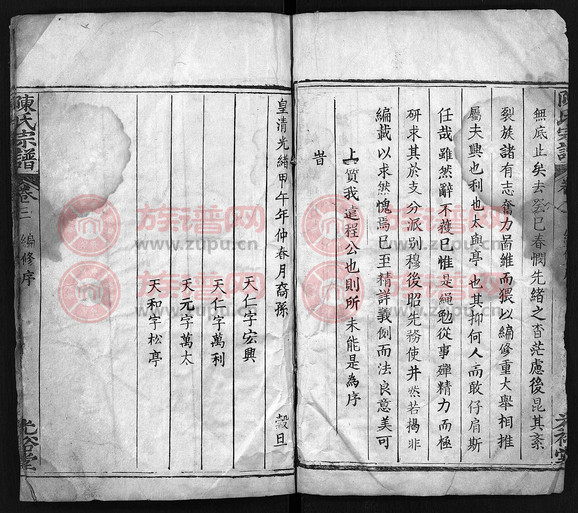 無底止矣去癸巳春憫先緒之杳茫慮後昆其紊
裂族諸有志奮力暠維而猥以編修重大舉相推
屬夫興也利也太與亭也其抑何人而敢仔肩斯
任哉雖然辭不獲已惟是繩勉從事殫精力而極
研求其於支分派別穆後昭先務使井然若揭非
編載以求然愧焉已至精詳義例而法良意美可
旹
上質我達程公也則所未能是為序
皇清光緒甲午年仲春月裔孫
天仁字宏興
天仁字萬利
天元字萬太
天和字松亭
穀旦
陳氏宗譜
卷三
編修序
光裕堂
族譜网
www.zupu.cn